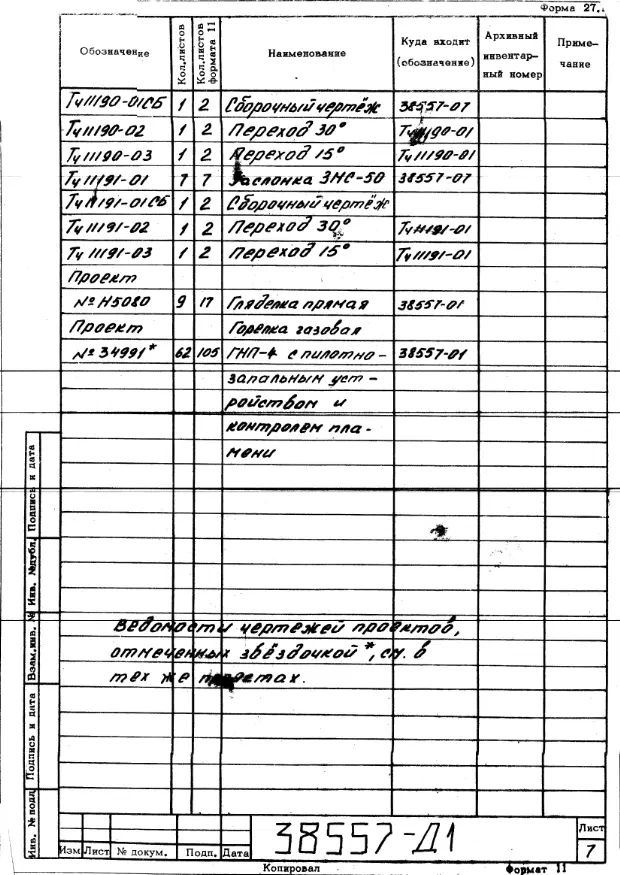 Форма 27.
Обозначение Кол.листов Кол.листов формата 11 Наименование Куда входит (обозначение) Архивный инвентарный номер Примечание
Тч11190-01СБ 1 2 Сборочный чертёж 38557-07
Тч11190-02 1 2 Переход 30° Тч11190-01
Тч11190-03 1 2 Переход 15° Тч11190-01
Тч11191-01 7 7 Заслонка ЗМС-50 38557-07
Тч11191-01СБ 1 2 Сборочный чертёж
Тч11191-02 1 2 Переход 30° Тч11191-01
Тч11191-03 1 2 Переход 15° Тч11191-01
Проект
№ Н5080 9 17 Гляделка прямая 38557-01
Проект Горелка газовая
№ 34991* 62 105 ГНП-4 с пилотно- 38557-01
запальным уст-
ройством и
контролем пла-
мени
Ведомости чертежей проектов,
отмеченных звёздочкой *, см. в
тех же проектах.
Инв. № подл. Подпись и дата Взам.инв. № Инв. №дубл. Подпись и дата
38557-Д1
Лист
7
Изм Лист № докум. Подп. Дата
Копировал Формат 11